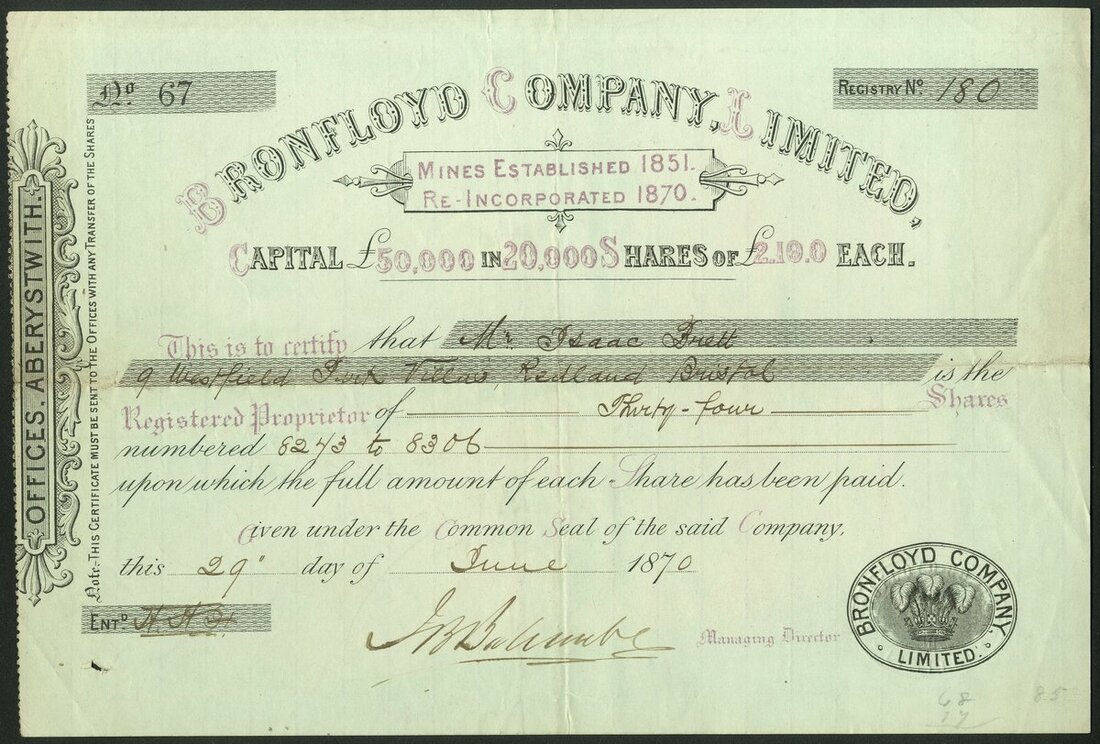 No 67
REGISTRY No. 180
BRONFLOYD COMPANY, LIMITED,
MINES ESTABLISHED 1851.
RE-INCORPORATED 1870.
CAPITAL £50,000 IN 20,000 SHARES OF £2.10.0 EACH.
This is to certify that Mr. Isaac Brett
9 Westfield Park Villas, Redland Bristol is the
Registered Proprietor of Thirty-four Shares
numbered 8273 to 8306
upon which the full amount of each Share has been paid.
Given under the Common Seal of the said Company,
this 29" day of June 1870
ENTD
Managing Director
BRONFLOYD COMPANY,
LIMITED.
OFFICES, ABERYSTWITH.
Note:-THIS CERTIFICATE MUST BE SENT TO THE OFFICES WITH ANY TRANSFER OF THE SHARES
68
17
85